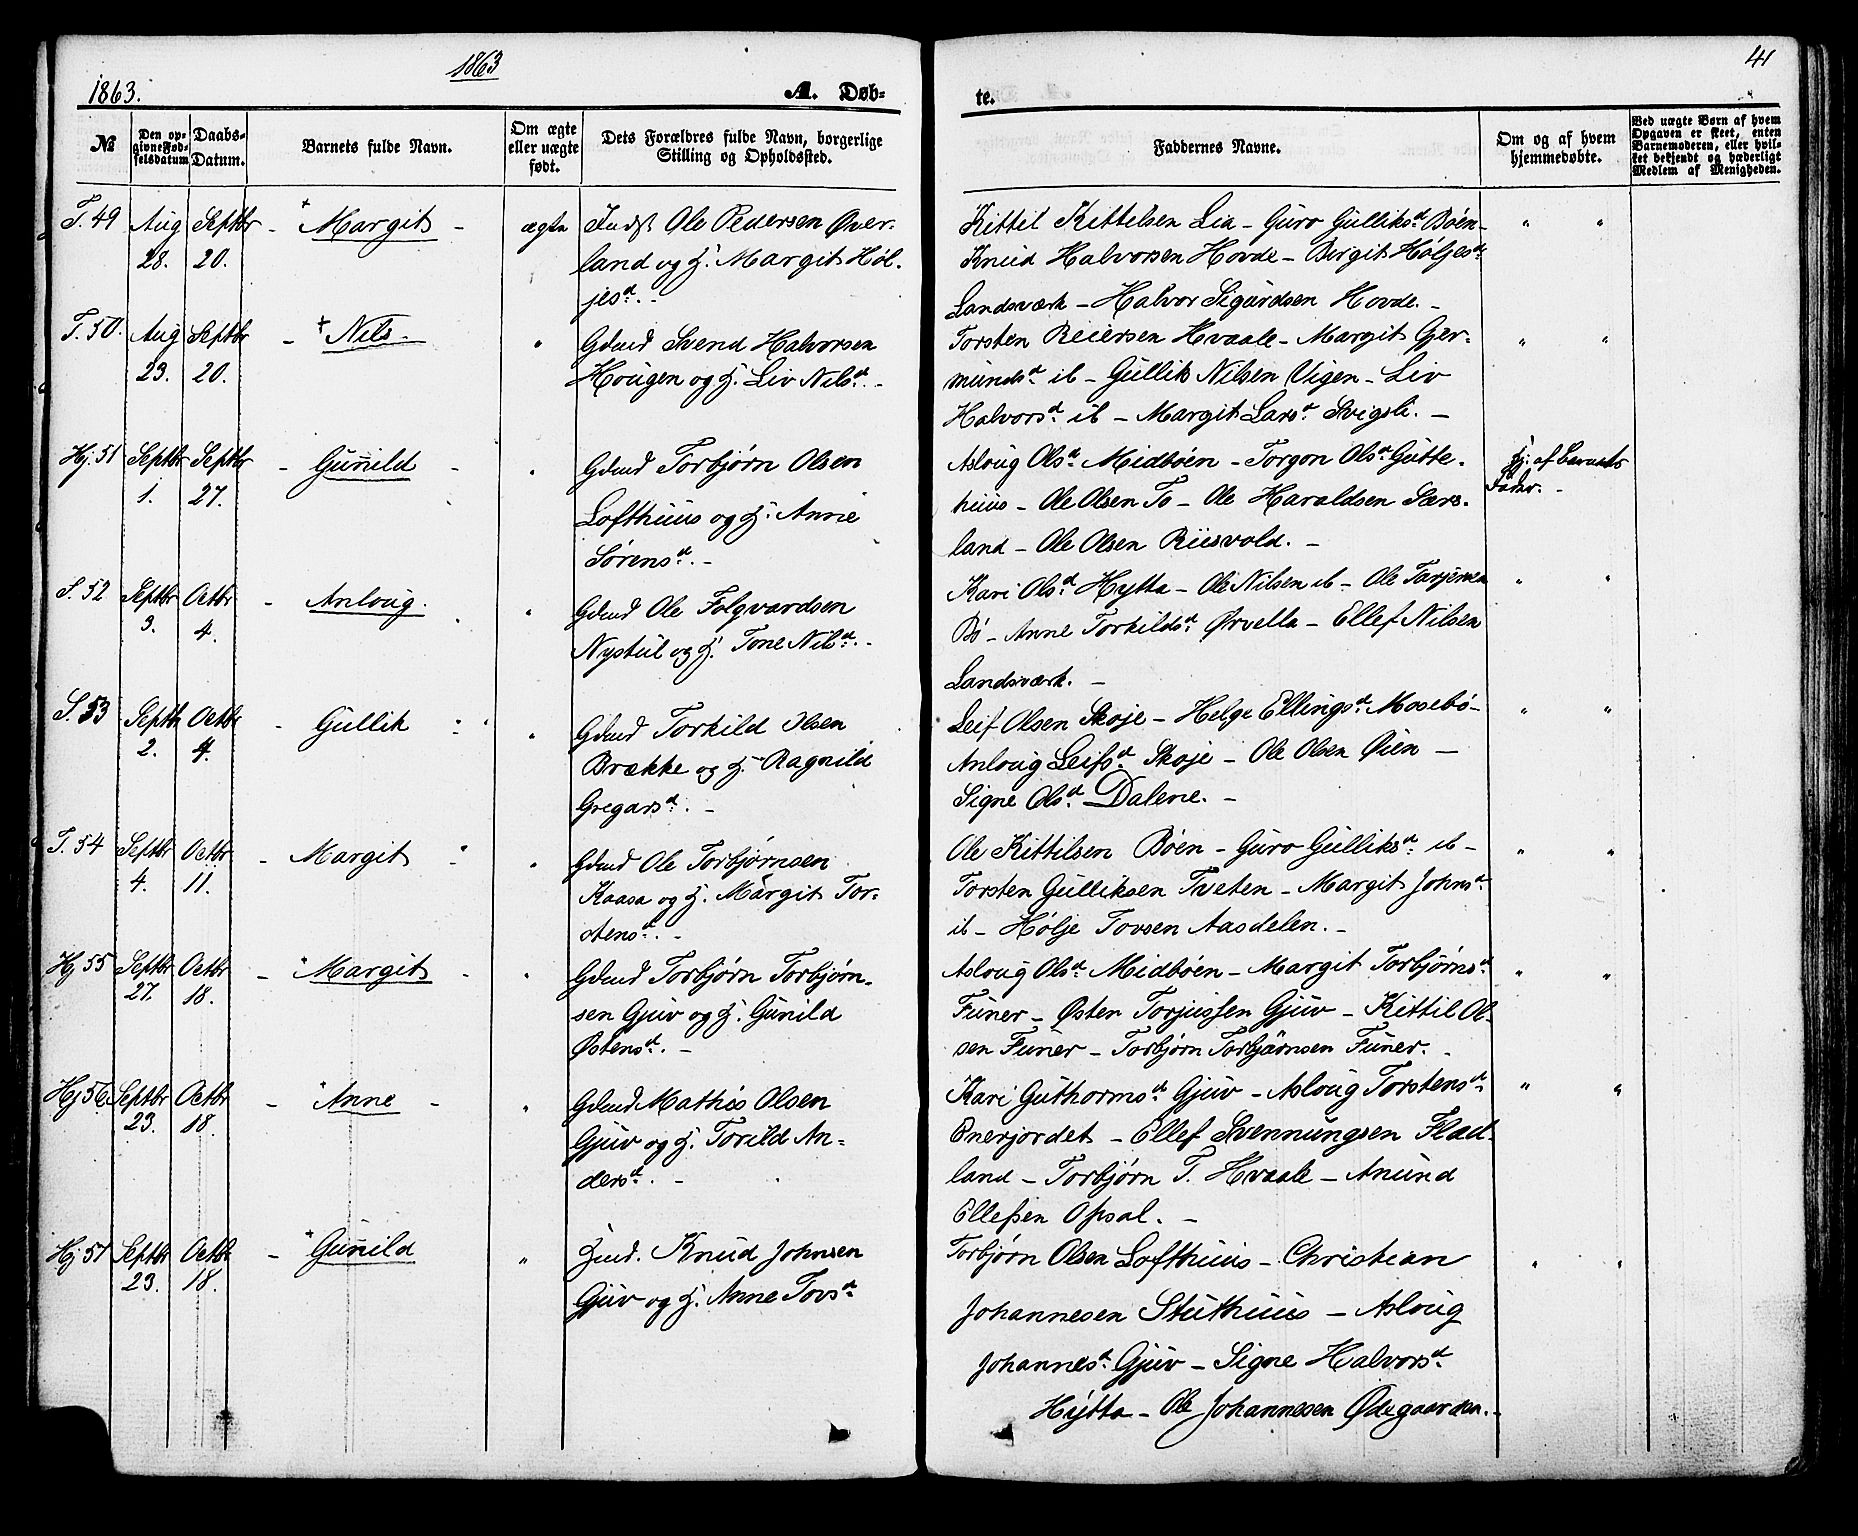 1863
41
1863.
A. Døb-
te.
№
Den op-
givne Fød-
selsdatum.
Daabs-
Datum.
Barnets fulde Navn.
Om ægte
eller uægte
født.
Dets Forældres fulde Navn, borgerlige
Stilling og Opholdssted.
Faddernes Navne.
Om og af hvem
hjemmedøbte.
Ved uægte Børn af hvem
Opgaven er skeet, enten
Barnemoderen, eller hvil-
ket bekjendt og hæderligt
Medlem af Menigheden.
T. 49 Aug 28. Septbr 20. - Margit - ægte
Indst Ole Pedersen Øver-
land og H. Margit Høl-
jesd. -
Kittil Kittelsen Lia - Guro Gulliksd Bøen -
Knud Halvorsen Hovde - Birgit Høljesd
Landsværk - Halvor Sigurdsen Hovde. -
T. 50. Aug 23. Septbr 20. - + Nils - "
Gdmd Svend Halvorsen
Hougen og H. Liv Nilsd. -
Torsten Reiersen Hvaale - Margit Gjer-
mundsd ib - Gullik Nilsen Vigen - Liv
Halvorsd ib - Margit Larsd Svigsli. -
Hj. 51 Septbr 1. Septbr 27. - Gunild - "
Gdmd Torbjørn Olsen
Lofthuus og H. Anne
Sørensd. -
Asloug Olsd Midbøen - Torgon Olsd Gutte-
huus - Ole Olsen To - Ole Haraldsen Sørs-
land - Ole Olsen Riisvold. -
Hj. af Barnets
Fader. -
S. 52 Septbr 3. Octbr 4. - Anloug. "
Gdmd Ole Folqvardsen
Nystul og H. Tone Nilsd. -
Kari Olsd Hytta - Ole Nilsen ib - Ole Tarjeisen
Bö - Anne Torkildsd Ørvella - Ellef Nilsen
Landsværk. -
S. 53 Septbr 2. Octbr 4. - Gullik " "
Gdmd Torkild Olsen
Brække og H. Ragnild
Gregarsd. -
Leif Olsen Skoje - Helge Ellingsd Mosebø -
Anloug Leifsd Skoje - Ole Olsen Øien -
Signe Olsd Dalene. -
T. 54 Septbr 4. Octbr 11. - Margit " "
Gdmd Ole Torbjørnsen
Kaasa og H. Margit Tor-
stensd. -
Ole Kittilsen Bøen - Guro Gulliksd ib -
Torsten Gulliksen Tveten - Margit Johnsd
ib - Hølje Tovsen Aasdelen. -
Hj 55 Septbr 27. Octbr 18. - Margit - "
Gdmd Torbjørn Torbjørn-
sen Gjuv og H. Gunild
Østensd. -
Asloug Olsd Midbøen - Margit Torbjørnsd
Funer - Østen Torjussen Gjuv - Kittil Ol-
sen Funer - Torbjørn Torbjørnsen Funer. -
Hj 56 Septbr 23. Octbr 18. - Anne - "
Gdmd Mathis Olsen
Gjuv og H. Torild An-
dersd. -
Kari Guthormsd Gjuv - Asloug Torstensd
Enerjordet - Ellef Svennungsen Flad-
land - Torbjørn T. Hvaale - Anund
Ellefsen Opsal. -
Hj 57 Septbr 23. Octbr 18. - + Gunild "
Hmd. Knud Johnsen
Gjuv og H. Anne Tovsd
Torbjørn Olsen Lofthuus - Christian
Johannesen Stuthuus - Asloug
Johannesd Gjuv - Signe Halvorsd
Hytta - Ole Johannesen Ødegaarden. -